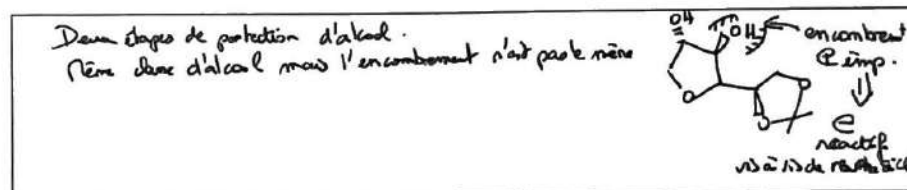 Deux étapes de protection d'alcool.
Même classe d'alcool mais l'encombrement n'est pas le même
OH
OH
encombrement
⊕ imp.
⇓
⊖
réactif
vis à vis de
O
O
O